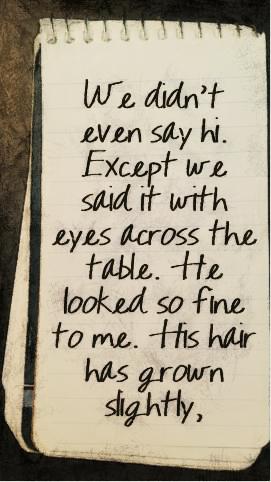 We didn't
even say hi.
Except we
said it with
eyes across the
table. He
looked so fine
to me. His hair
has grown
slightly,